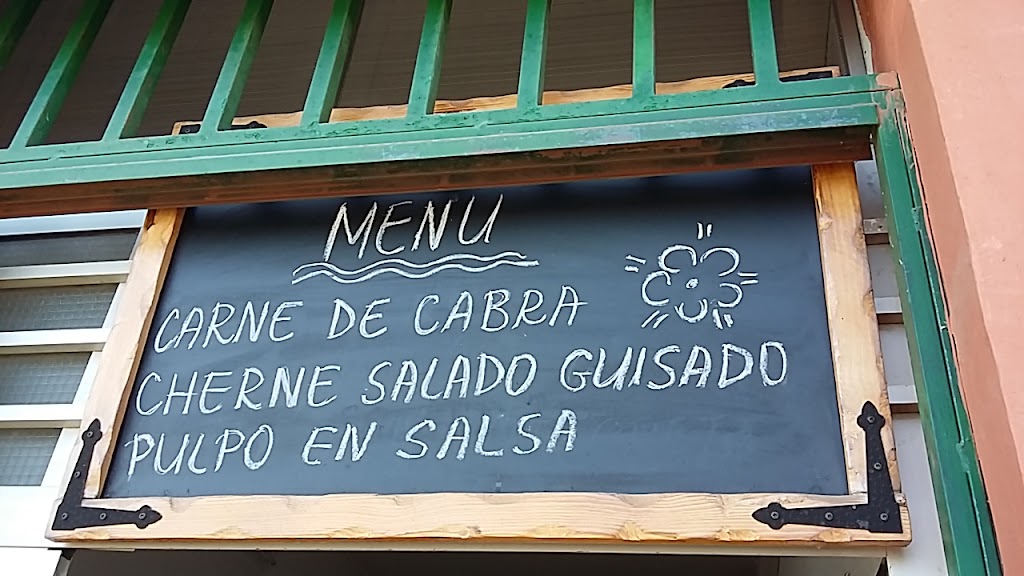 MENU
CARNE DE CABRA
CHERNE SALADO GUISADO
PULPO EN SALSA